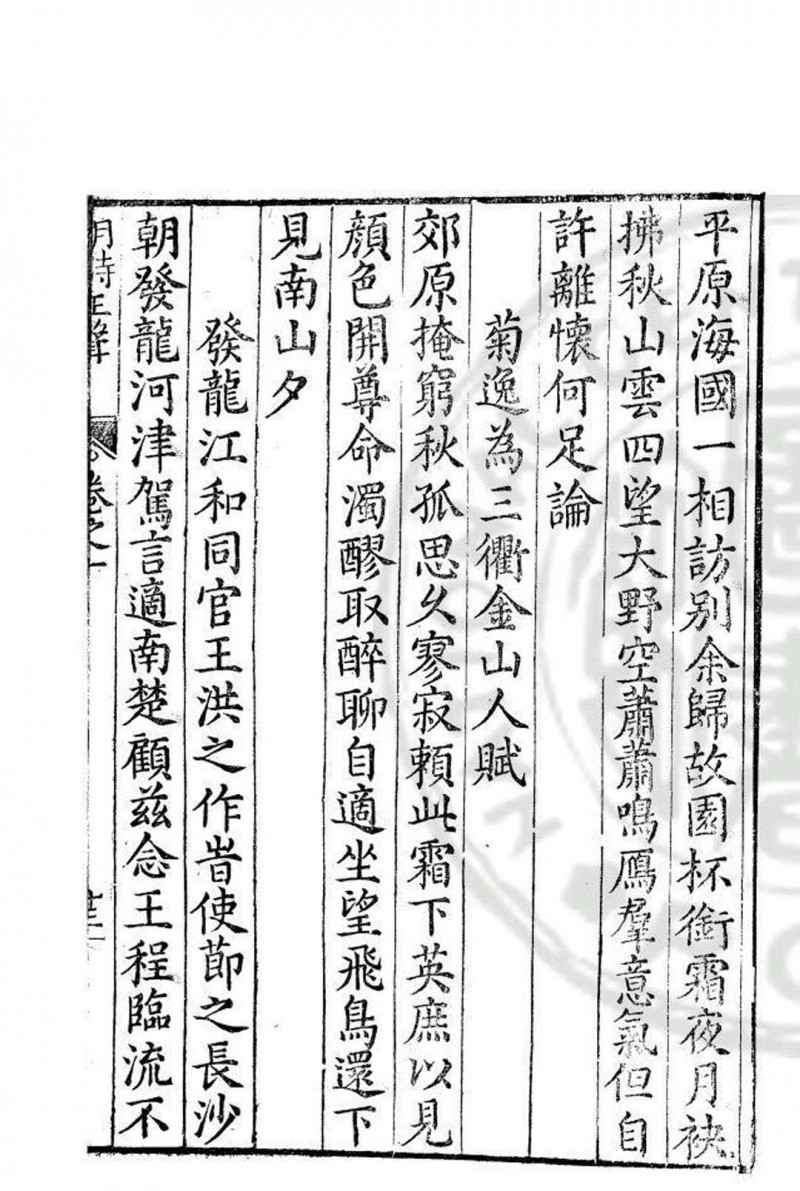 平原海國一相訪別余歸故園杯銜霜夜月袂
拂秋山雲四望大野空蕭蕭鳴鴈羣意氣但自
許離懷何足論
菊逸為三衢金山人賦
郊原掩窮秋孤思久寥寂頼此霜下英庶以見
顔色開尊命濁醪取醉聊自適坐望飛鳥還下
見南山夕
發龍江和同官王洪之作旹使節之長沙
朝發龍河津駕言適南楚顧兹念王程臨流不
卷之一